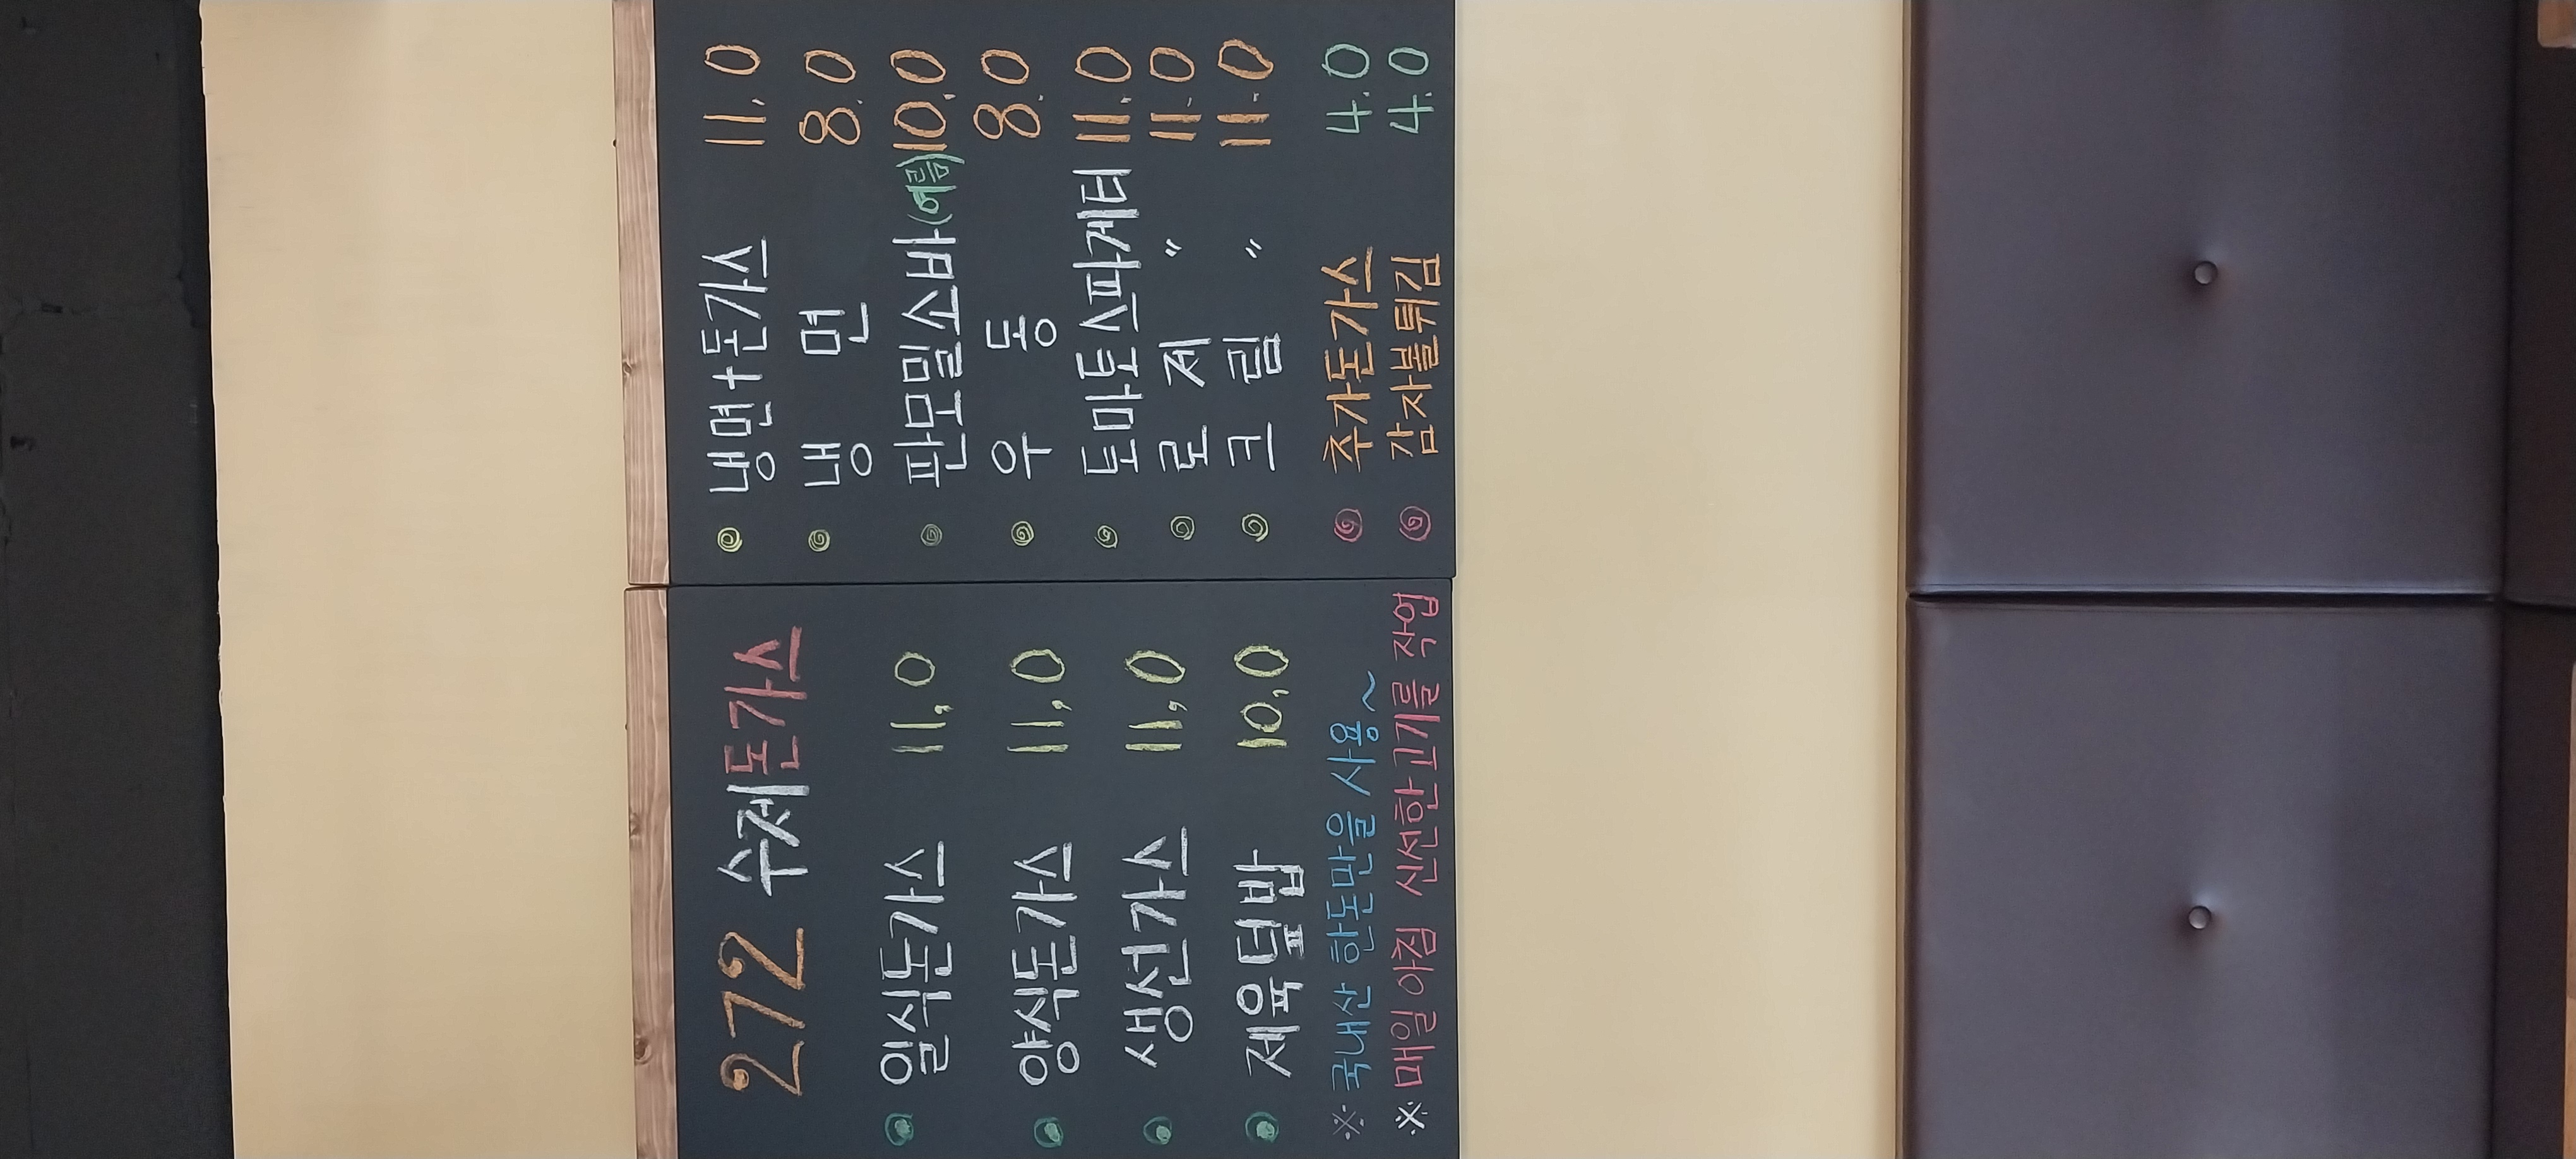 272 수제돈가스
일식돈가스 11,0
양식돈가스 11,0
생선가스 11,0
제육덮밥 10,0
※ 국내산 한돈만을 사용~
※ 매일 아침 신선한고기를 작업
냉면+돈가스 11,0
냉 면 8.0
판모밀소바(여름) 10.0
우 동 8.0
토마토스파게티 11.0
로 제 〃 11.0
크 림 〃 11.0
추가돈가스 4.0
감자볼튀김 4.0